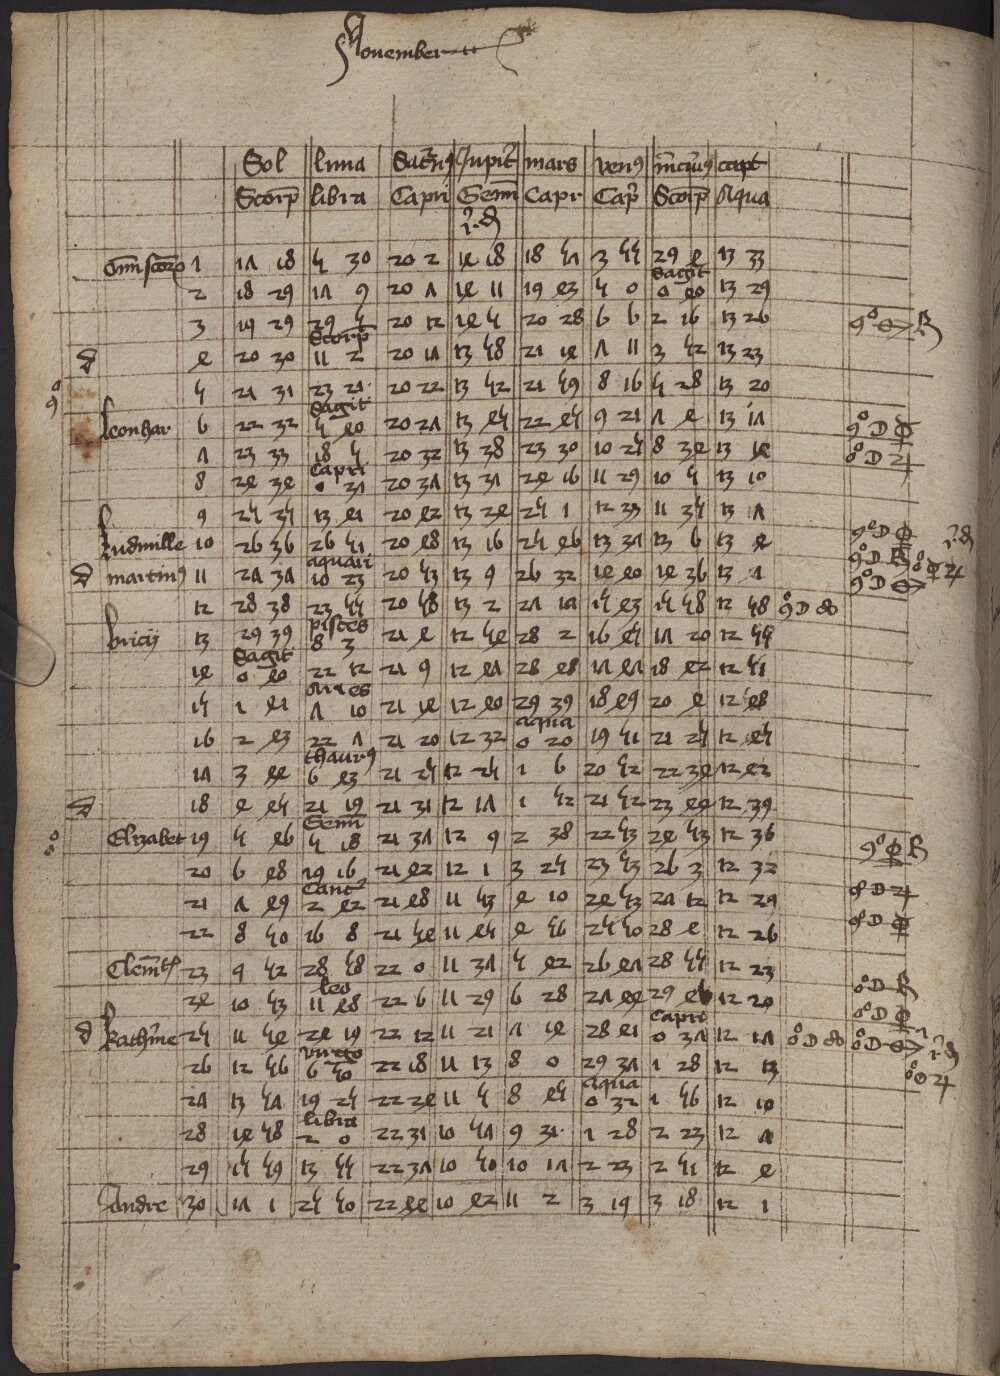 November
Sol luna Saturn9 Jupiter mars ven9 mercuri9 capt
Scorp libra Capri Gemi Capr Capr Scorp Aqua
1 17 18 5 30 20 2 14 18 18 57 3 55 29 4 13 33
Sagit
2 18 29 17 9 20 7 14 11 19 43 5 0 0 40 13 29
3 19 29 29 5 20 12 14 5 20 28 6 6 2 16 13 26
Scorp
d 4 20 30 11 2 20 17 13 58 21 14 7 11 3 52 13 23
5 21 31 23 21 20 22 13 52 21 59 8 16 5 28 13 20
Sagit
leonhar 6 22 32 5 40 20 27 13 45 22 45 9 21 7 4 13 17
7 23 33 18 5 20 32 13 38 23 30 10 25 8 34 13 14
Capri
8 24 34 0 37 20 37 13 31 24 16 11 29 10 5 13 10
9 25 35 13 41 20 42 13 24 25 1 12 33 11 35 13 7
ludmille 10 26 36 26 51 20 48 13 16 25 46 13 37 13 6 13 4
aquari
d martin9 11 27 37 10 23 20 53 13 9 26 32 14 40 14 36 13 1
12 28 38 23 55 20 58 13 2 27 17 15 43 15 58 12 58
pisces
bricij 13 29 39 8 3 21 4 12 54 28 2 16 45 17 20 12 55
Sagit
14 0 40 22 12 21 9 12 47 28 48 17 47 18 42 12 51
Aries
15 1 41 7 10 21 14 12 40 29 39 18 49 20 4 12 48
aqua
16 2 43 22 7 21 20 12 32 0 20 19 51 21 25 12 45
thaur9
17 3 44 6 43 21 25 12 25 1 6 20 52 22 34 12 42
d 18 4 45 21 19 21 31 12 17 1 52 21 52 23 44 12 39
Gemi
Elizabet 19 5 46 5 18 21 37 12 9 2 38 22 53 24 53 12 36
20 6 48 19 16 21 42 12 1 3 25 23 53 26 3 12 32
Canc
21 7 49 2 42 21 48 11 53 4 10 24 53 27 12 12 29
22 8 50 16 8 21 54 11 45 4 56 25 50 28 4 12 26
23 9 52 28 58 22 0 11 37 5 42 26 47 28 55 12 23
leo
24 10 53 11 48 22 6 11 29 6 28 27 44 29 46 12 20
Capri
d kathrine 25 11 54 24 19 22 12 11 21 7 14 28 41 0 37 12 17
virgo
26 12 56 6 50 22 18 11 13 8 0 29 37 1 28 12 13
aqua
27 13 57 19 25 22 24 11 5 8 45 0 32 1 56 12 10
libra
28 14 58 2 0 22 31 10 57 9 31 1 28 2 23 12 7
29 15 59 13 55 22 37 10 50 10 17 2 23 2 51 12 4
Andre 30 17 1 25 50 22 44 10 42 11 2 3 19 3 18 12 1